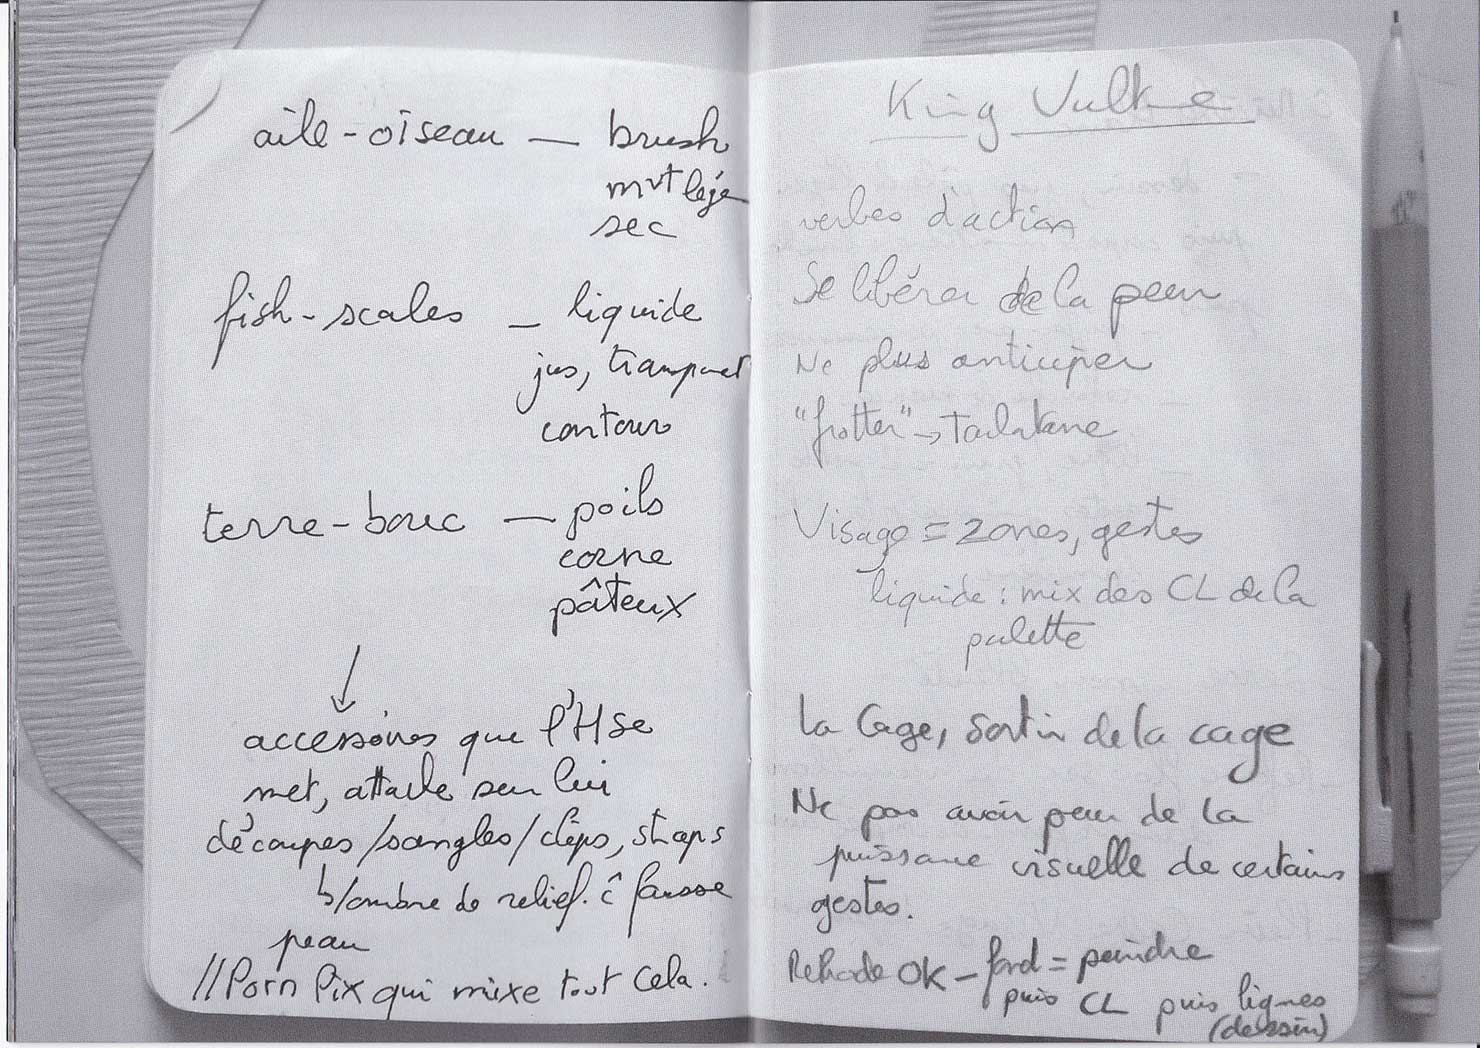 aile-oiseau — brush
mvt lége
sec
fish-scales — liquide
jus, transparet
contour
terre-bouc — poils
corne
pâteux
↓
accessoires que l'H se
met, attache sur lui
découpes/sangles/clips, straps
b/ombre de relief. ê fausse
peau
//Porn Pix qui mixe tout cela.
King Vulture
verbes d'action
Se libérer de la peur
Ne plus anticiper
"frotter" →
Visage = zones, gestes
liquide : mix des CL de la
palette
la Cage, sortir de la cage
Ne pas avoir peur de la
puissance visuelle de certains
gestes.
OK – fond = peindre
puis CL puis lignes
(dessin)